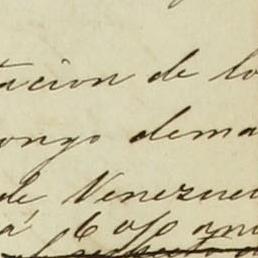 tacion de lo
ongo dema
de Venezuel
á 6 o/o anu